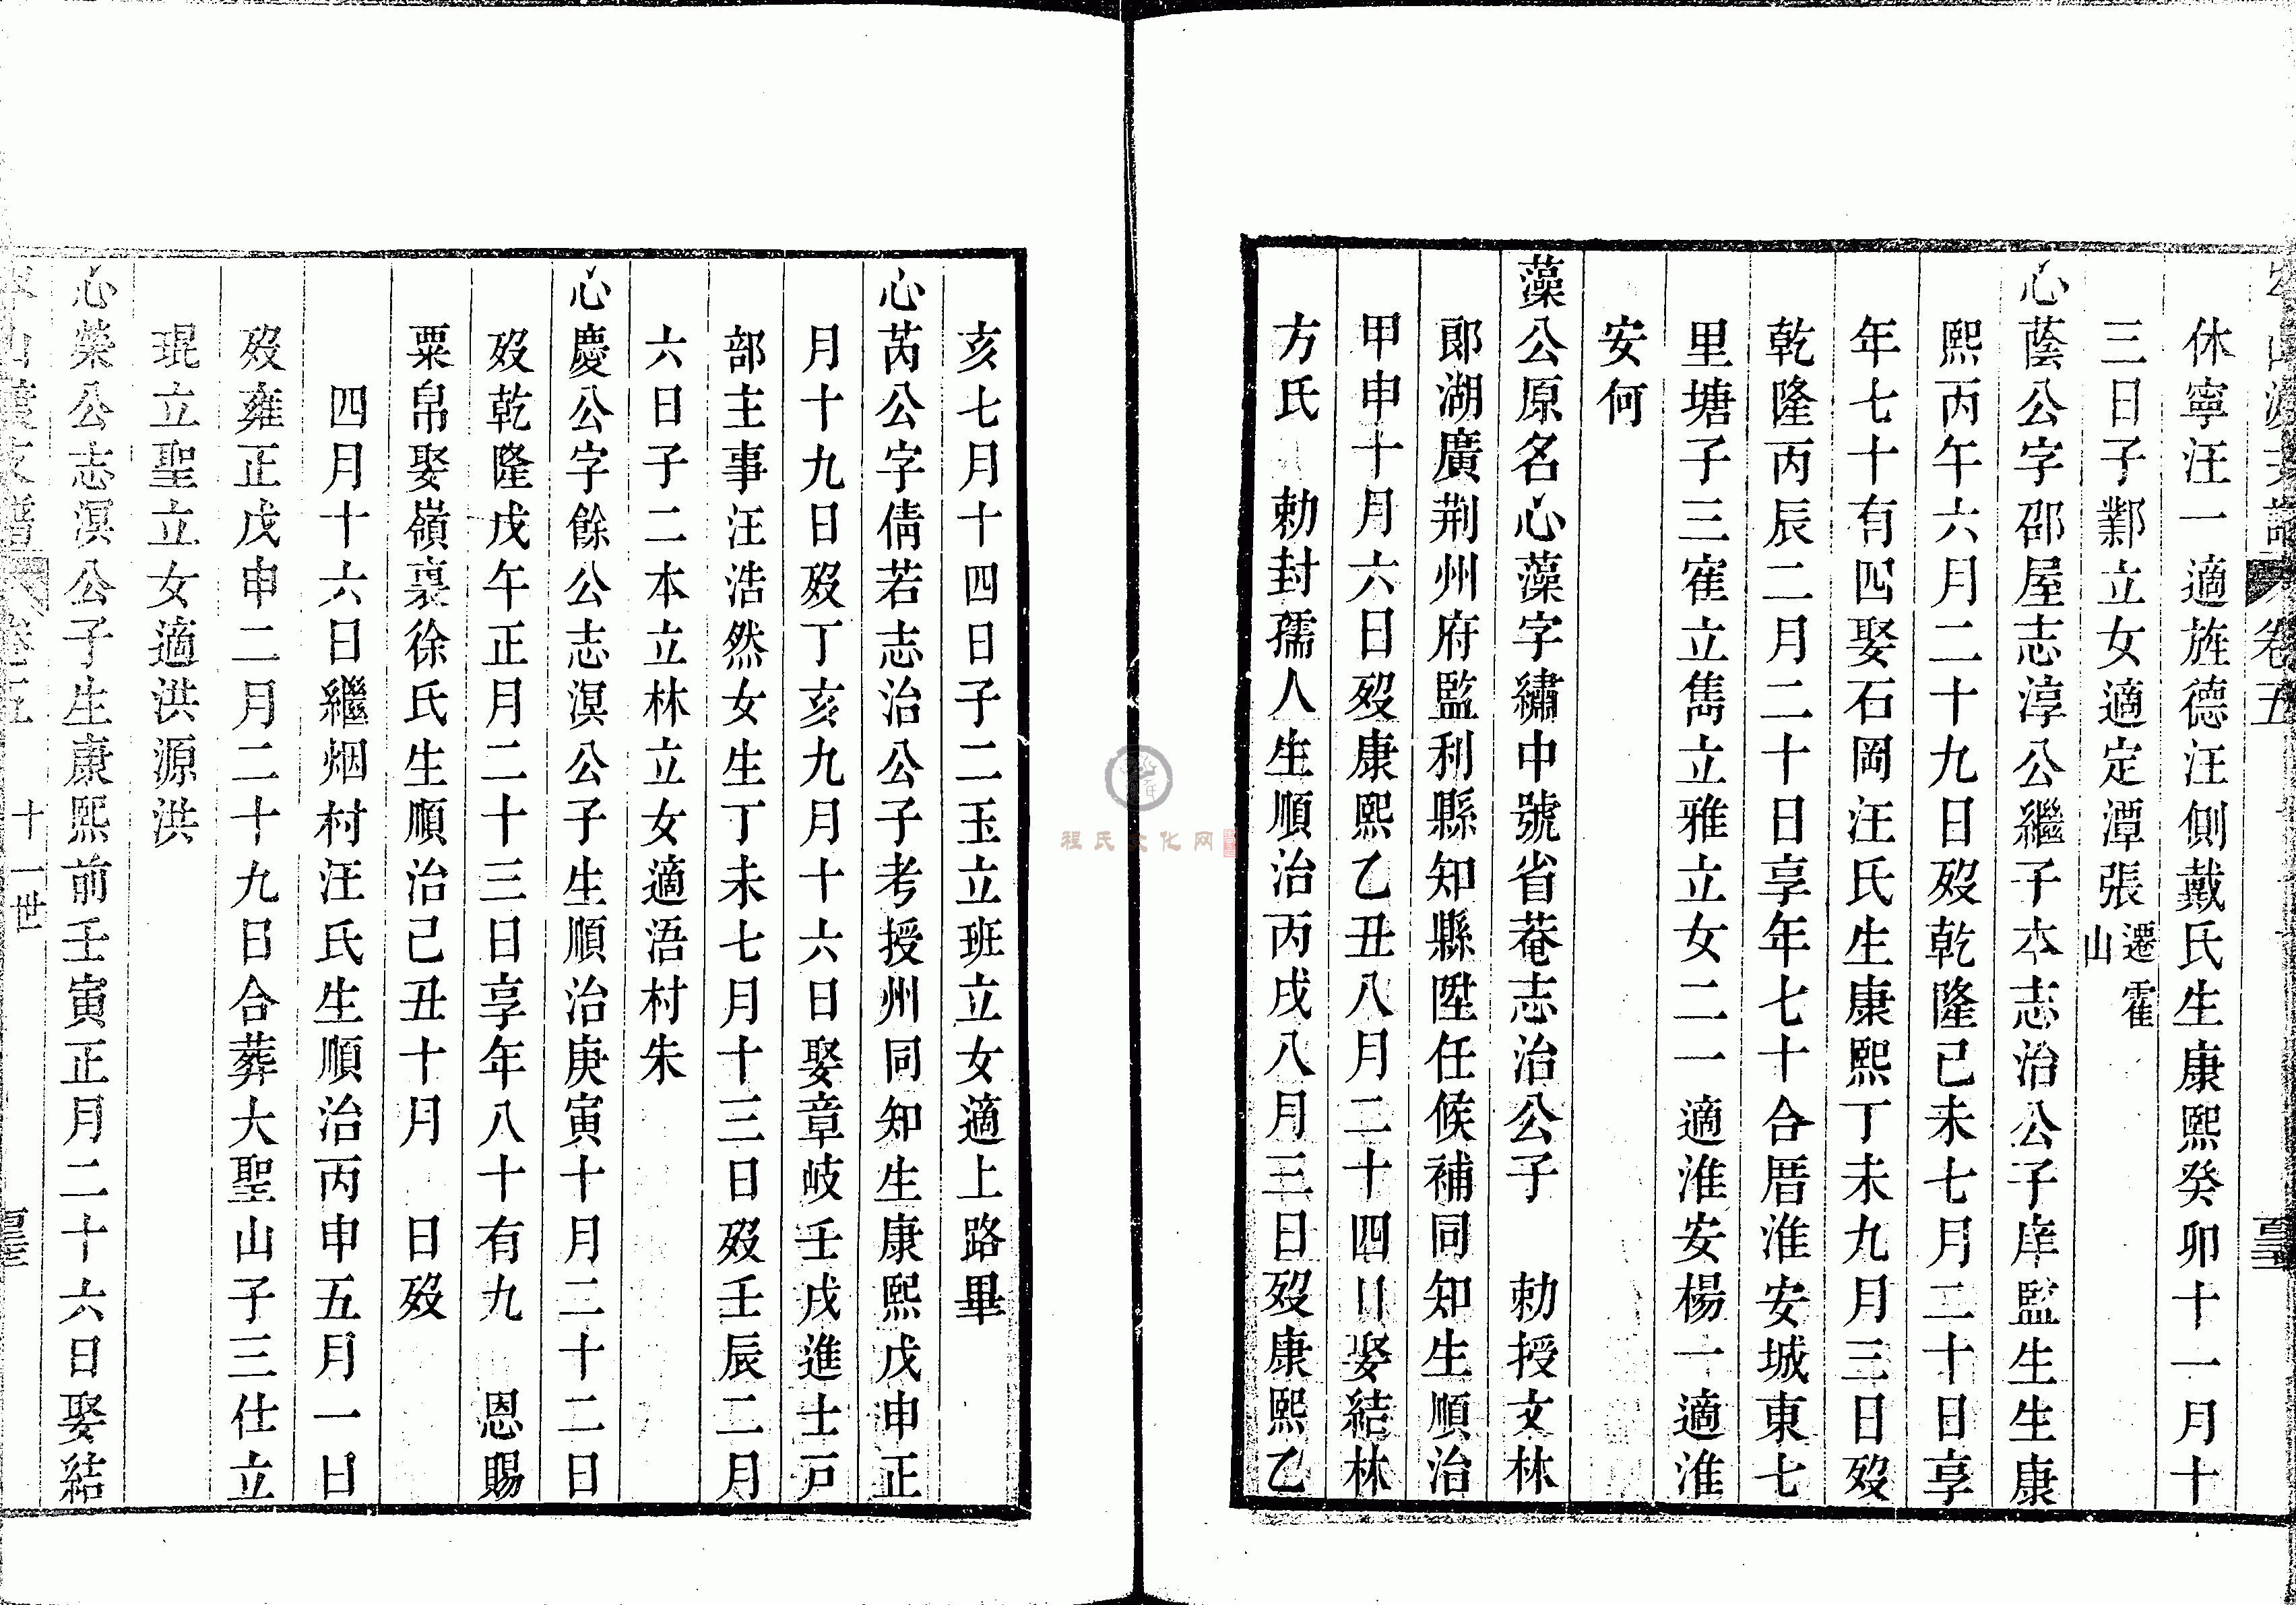 卷五
休寧汪一適旌德汪側戴氏生康熙癸卯十一月十
三日子酆立女適定潭張遷霍山
心蔭公字邵屋志淳公繼子本志治公子庠監生生康
熙丙午六月二十九日歿乾隆己未七月二十日享
年七十有四娶石岡汪氏生康熙丁未九月三日歿
乾隆丙辰二月二十日享年七十合厝淮安城東七
里塘子三寉立雋立雅立女二一適淮安楊一適淮
安何
藻公原名心藻字繡中號省菴志治公子 勅授文林
郎湖廣荆州府監利縣知縣陞任候補同知生順治
甲申十月六日歿康熙乙丑八月二十四日娶結林
方氏 勅封孺人生順治丙戌八月三日歿康熙乙
亥七月十四日子二玉立班立女適上路畢
心芮公字倩若志治公子考授州同知生康熙戊申正
月十九日歿丁亥九月十六日娶章岐壬戌進士戸
部主事汪浩然女生丁未七月十三日歿壬辰二月
六日子二本立林立女適浯村朱
心慶公字餘公志溟公子生順治庚寅十月二十二日
歿乾隆戊午正月二十三日享年八十有九 恩賜
粟帛娶嶺裏徐氏生順治己丑十月 日歿
四月十六日繼烟村汪氏生順治丙申五月一日
歿雍正戊申二月二十九日合葬大聖山子三仕立
琨立聖立女適洪源洪
心榮公志溟公子生康熙前壬寅正月二十六日娶結
十一世
程氏文化网